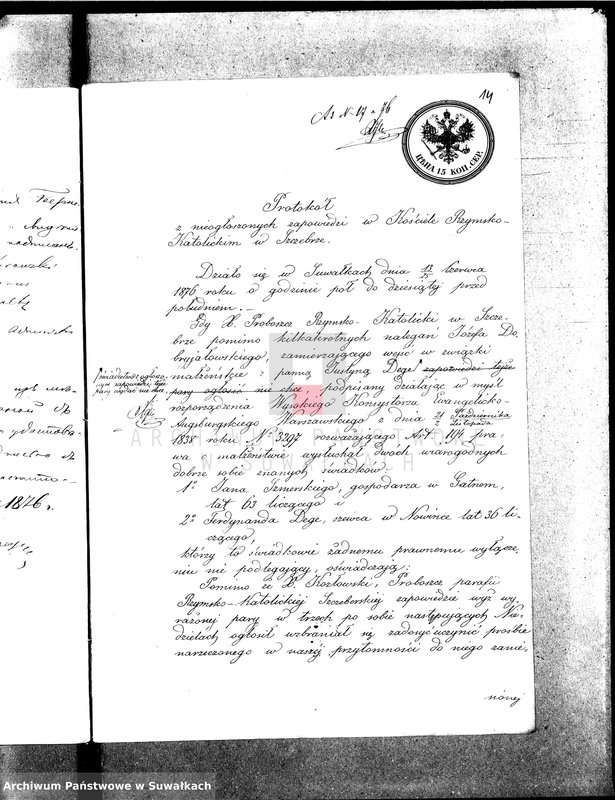 14
Ad N. 17 a 76
ЦѢНА 15 КОП. СЕР.
Protokół
z nieogłoszonych zapowiedzi w Kościele Rzymsko-
Katolickim w Szczebrze.
Działo się w Suwałkach dnia 13/25 Czerwca
1876 roku o godzinie pół do dziesiątej przed
południem.-
Gdy X. Proboszcz Rzymsko-Katolicki w Szcze-
brze pomimo kilkakrotnych nalegań Józefa Do-
bryjałowskiego, zamierzającego wejść w związki
małżeńskie z panną Justyną Dege zapowiedzi tejże
pary ogłosić nie chce, podpisany działając w myśl
świadectwa ogłoszo-
nych zapowiedzi tejże
pary wydać nie chce
rozporządzenia Wysokiego Konsystorza Ewangelicko-
Augsburgskiego Warszawskiego z dnia 21 Października
2 Listopada
1838 roku N: 3297 rozważającego Art. 194 pra-
wa o małżeństwie wysłuchał dwóch wiarogodnych
dobrze sobie znanych świadków:
1o Jana Szmerskiego, gospodarza w Gatnem,
lat 63 liczącego i
2o Ferdynanda Dege, szewca w Nowince lat 36 li-
czącego,
którzy to świadkowie żadnemu prawnemu wyłącze-
niu nie podlegający, oświadczają:
Pomimo że X. Kozłowski, Proboszcz parafii
Rzymsko-Katolickiej Szczeberskiej zapowiedzie wyż wy-
rażonej pary w trzech po sobie następujących Nie-
dzielach ogłosił wzbraniał się zadosyć uczynić prośbie
narzeczonego w naszej przytomności do niego zanie-
sionej
1876 r.
ARCHIWUM PAŃSTWOWE
W SUWAŁKACH
Archiwum Państwowe w Suwałkach